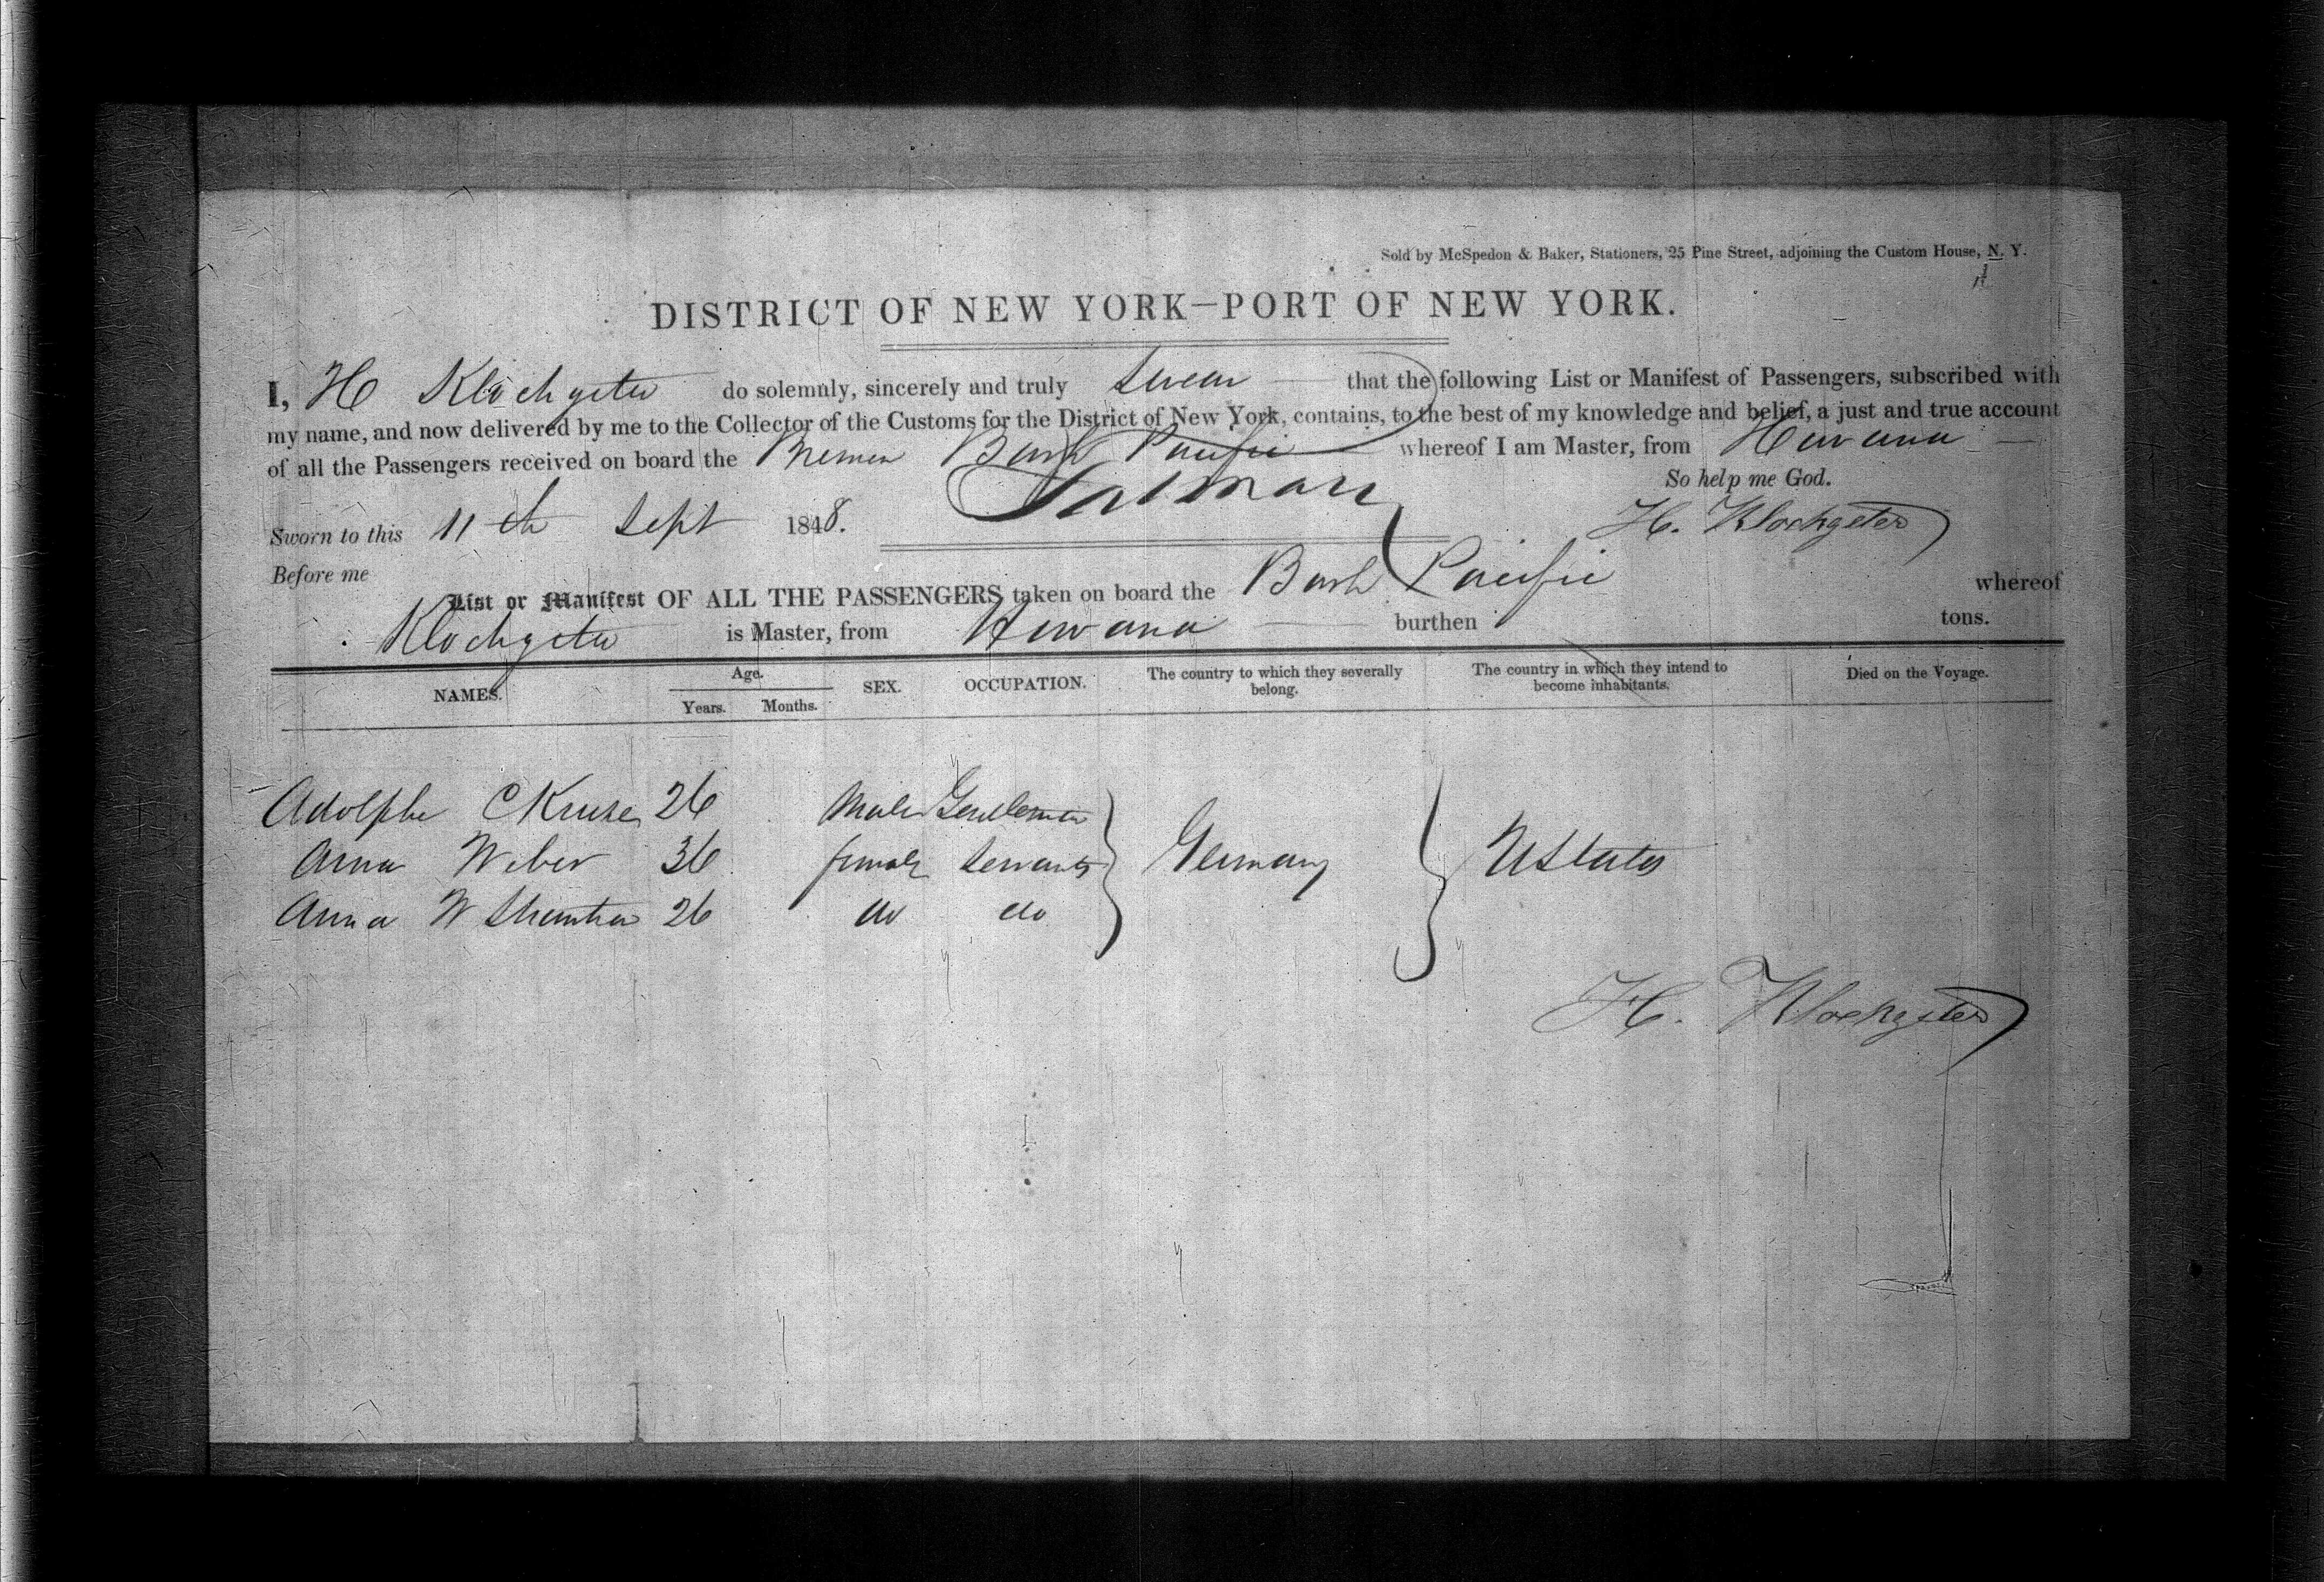 Sold by McSpedon & Baker, Stationers, 25 Pine Street, adjoining the Custom House, N. Y.
DISTRICT OF NEW YORK—PORT OF NEW YORK.
I, H Klockgeter do solemnly, sincerely and truly swear that the following List or Manifest of Passengers, subscribed with
my name, and now delivered by me to the Collector of the Customs for the District of New York, contains, to the best of my knowledge and belief, a just and true account
of all the Passengers received on board the Bremen Bark Pacific whereof I am Master, from Havana
So help me God.
Sworn to this 11th Sept 1848. H. Klockgeter
Before me
List or Manifest OF ALL THE PASSENGERS taken on board the Bark Pacific whereof
Klockgeter is Master, from Havana burthen tons.
NAMES. Age. Years. Months. SEX. OCCUPATION. The country to which they severally belong. The country in which they intend to become inhabitants. Died on the Voyage.
Adolphe C Kruse 26 Male Gentleman
Anna Weber 36 female Servants Germany UStates
Anna W 26 do do
H. Klockgeter